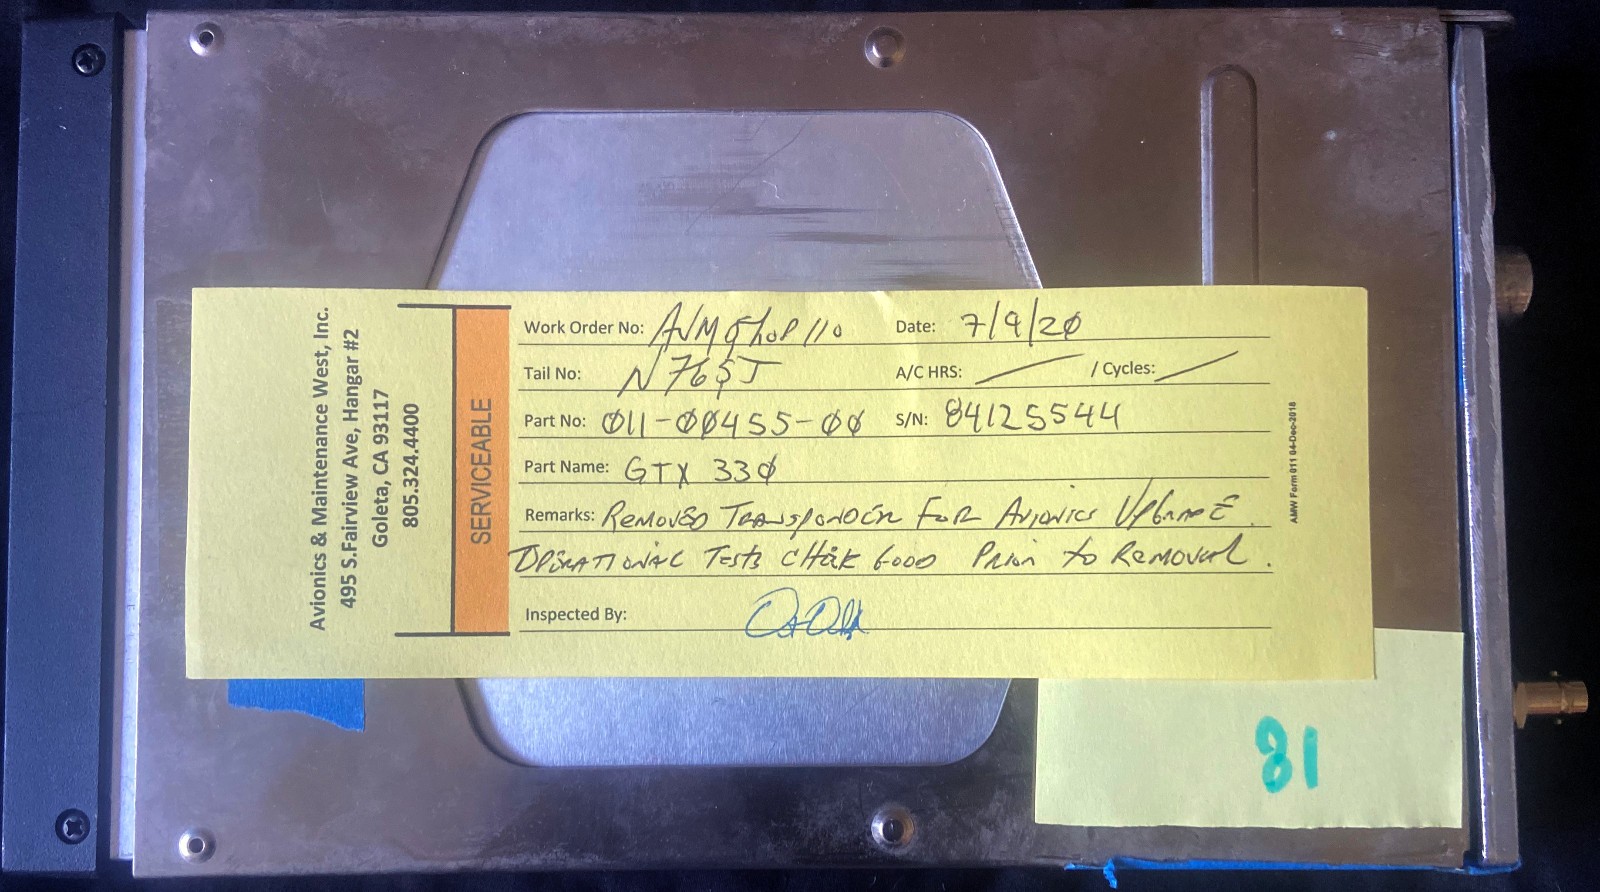 Avionics & Maintenance West, Inc.
495 S.Fairview Ave, Hangar #2
Goleta, CA 93117
805.324.4400
SERVICEABLE
Work Order No: Date: 7/9/20
Tail No: A/C HRS: / Cycles:
Part No: 011-00455-00 S/N: 84125544
Part Name: GTX 330
Remarks: REMOVED TRANSPONDER FOR AVIONICS UPGRADE.
OPERATIONAL TESTS CHECK GOOD PRIOR TO REMOVAL.
Inspected By:
AMW Form 011 04-Dec-2018
81